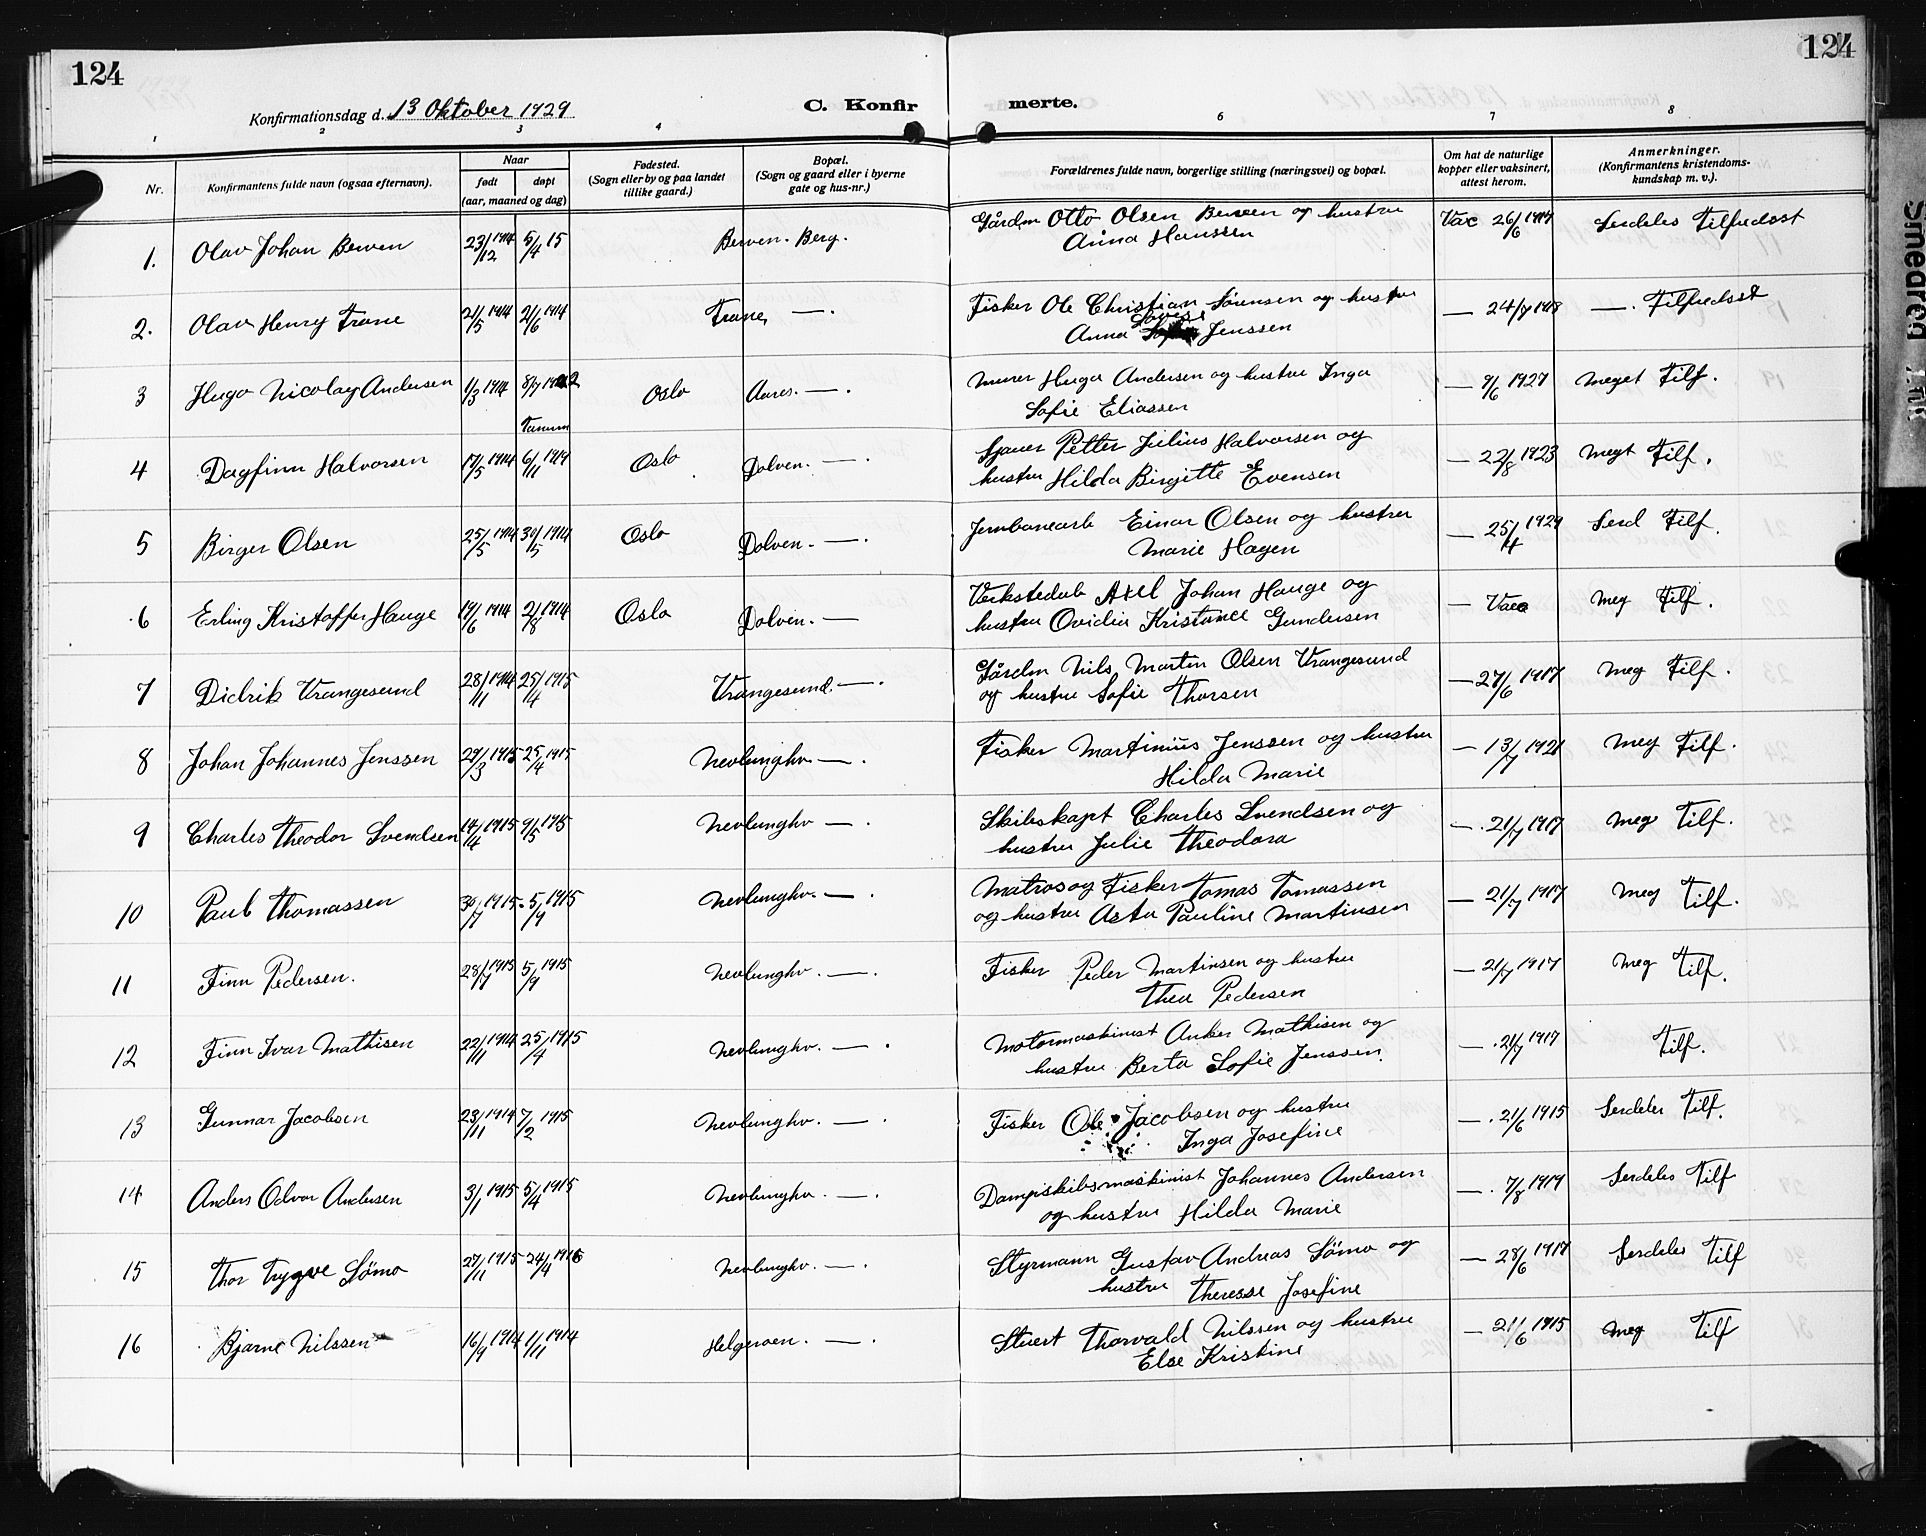 124
124
Konfirmationsdag d. 13 Oktober 1929
C. Konfir merte.
1 2 3 4 6 7 8
Nr.
Konfirmantens fulde navn (ogsaa efternavn).
Naar
født
døpt
(aar, maaned og dag)
Fødested.
(Sogn eller by og paa landet
tillike gaard.)
Bopæl.
(Sogn og gaard eller i byerne
gate og hus-nr.)
Forældrenes fulde navn, borgerlige stilling (næringsvei) og bopæl.
Om hat de naturlige
kopper eller vaksinert,
attest herom.
Anmerkninger.
(Konfirmantens kristendoms-
kundskap m. v.).
1. Olav Johan Berven 23/12 1914 5/4 15 Berven. Berg. Gårdm Otto Olsen Berven og hustru Vac 26/6 1917 Serdeles Tilfredsst
Anna Hanssen
2. Olav Henry Trane 21/5 1914 21/6 1914 Trane, —. Fisker Ole Christian Sørensen og hustru — 24/7 1918 —. Tilfredsst
Anna Lovise Jenssen
3 Hugo Nicolay Andersen 1/3 1914 8/7 1922 Oslo Aares. —. Murer Hugo Andersen og hustru Inga — 9/6 1927 Meget Tilf.
Sofie Eliassen
Tanum
4 Dagfinn Halvorsen 17/5 1914 6/11 1919 Oslo Dolven. —. Sjauer Petter Julius Halvorsen og — 22/8 1923 Megt Tilf.
hustru Hilda Birgitte Evensen
5 Birger Olsen 25/5 1914 30/5 1914 Oslo Dolven. —. Jernbanearb Einar Olsen og hustru — 25/4 1929 Serd Tilf.
Marie Hagen
6 Erling Kristoffer Hauge 19/6 1914 2/8 1914 Oslo Dolven. — Verkstedarb Axel Johan Hauge og — Vac Meg Tilf.
hustru Ovidia Kristance Gundersen
7 Didrik Vrangesund 28/11 1914 25/4 1915 Vrangesund. —. Gårdm Nils Martin Olsen Vrangesund — 27/6 1917 Meg Tilf.
og hustru Sofie Thorsen
8 Johan Johannes Jenssen 29/3 1915 25/4 1915 Nevlunghv. —. Fisker Martinius Jenssen og hustru — 13/7 1921 Meg Tilf.
Hilda Marie
9 Charles Theodor Svendsen 14/4 1915 9/5 1915 Nevlunghv —. Skibskapt Charles Svendsen og —. 21/7 1917 Meg Tilf.
hustru Julie Theodora
10 Paul Thomassen 30/7 1915. 5/9 1915 Nevlunghv. —. Matros og Fisker Tomas Tomassen — 21/7 1917 Meg Tilf.
og hustru Asta Pauline Martinsen
11 Finn Pedersen. 28/7 1915 5/9 1915 Nevlunghv. —. Fisker Peder Martinsen og hustru — 21/7 1917 Meg Tilf.
Thea Pedersen
12 Finn Ivar Mathisen 22/11 1914 25/4 1915 Nevlunghv. —. Motormaskinist Anker Mathisen og —. 21/7 1917 Tilf.
hustru Berta Sofie Jenssen.
13 Gunnar Jacobsen 23/11 1914 7/2 1915 Nevlunghv. —. Fisker Ole Jacobsen og hustru —. 21/6 1915 Serdeles Tilf.
Inga Josefine
14 Anders Odvar Andersen 3/1 1915 5/4 1915 Nevlunghv. —. Dampskibsmaskinist Johannes Andersen —. 7/8 1919 Serdeles Tilf
og hustru Hilda Marie
15 Thor Trygve Sömo 27/11 1915 24/4 1916 Nevlunghv. —. Styrmann Gustav Andreas Sömo og — 28/6 1917 Serdeles Tilf
hustru Theresse Josefine
16 Bjarne Nilssen 16/9 1914 1/11 1914 Helgeroen. —. Stuert Thorvald Nilssen og hustru — 21/6 1915 Meg Tilf
Else Kristine